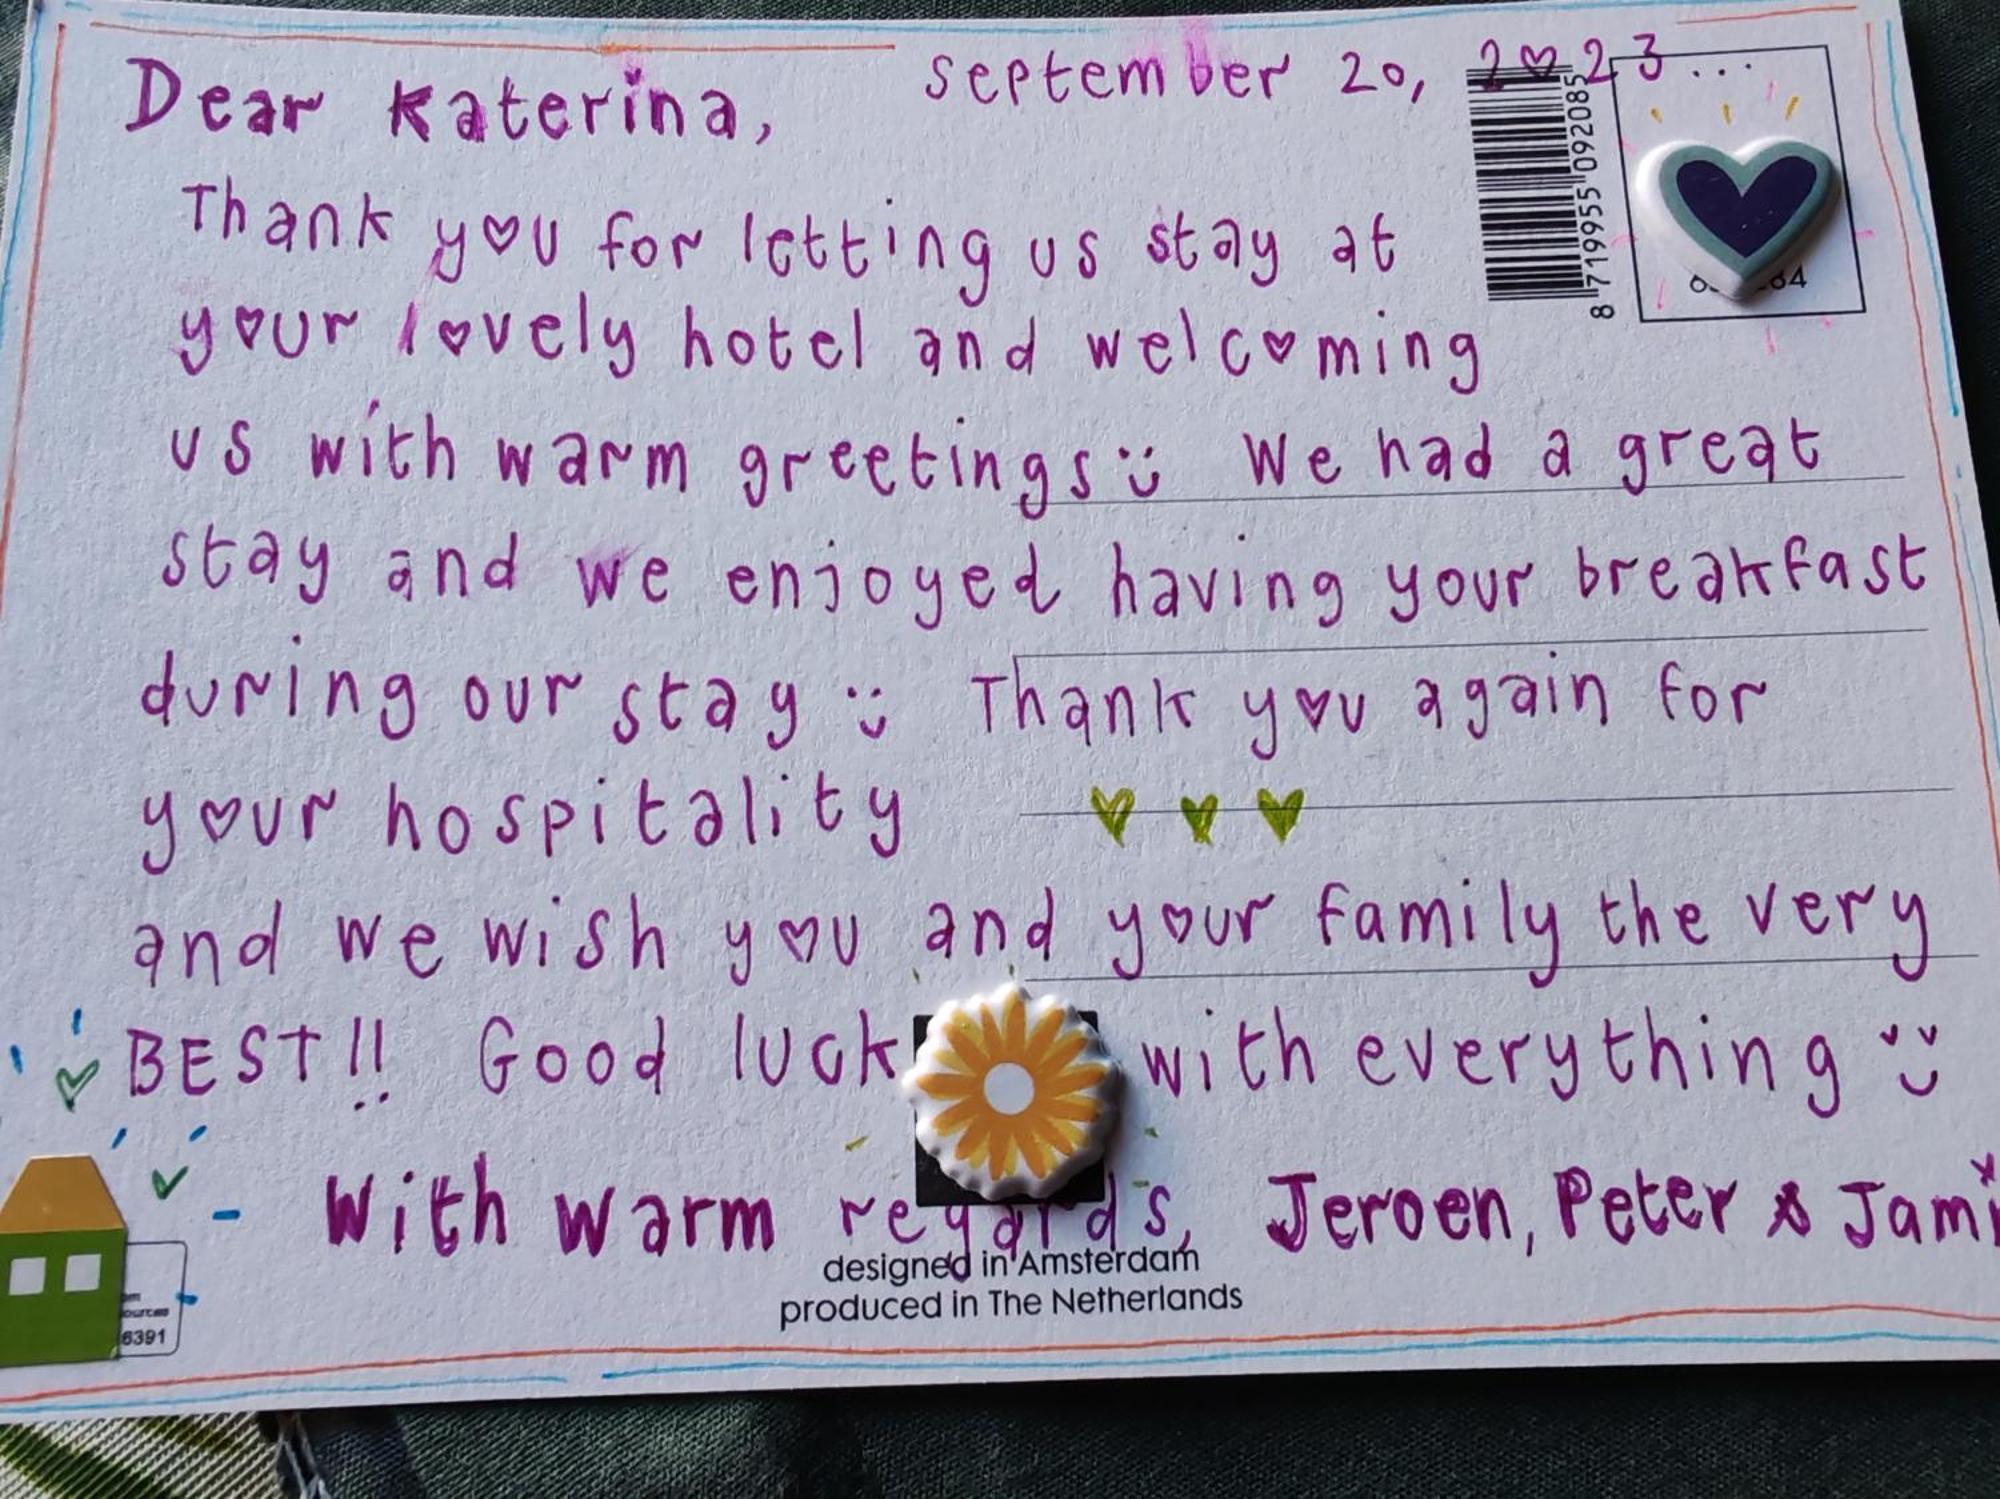 Dear Katerina, September 20, 2023...
Thank you for letting us stay at
your lovely hotel and welcoming
us with warm greetings We had a great
stay and we enjoyed having your breakfast
during our stay Thank you again for
your hospitality
and we wish you and your family the very
BEST!! Good luck with everything
- With warm regards, Jeroen, Peter & Jami
designed in Amsterdam
produced in The Netherlands
8 719955 092085
6391